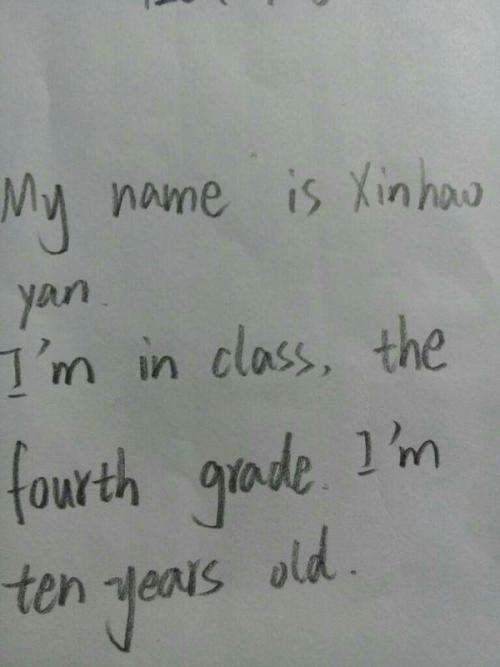 My name is Xinhao
yan.
I'm in class, the
fourth grade. I'm
ten years old.